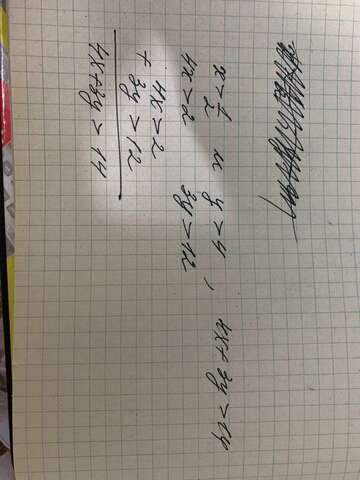 x > 1/2 и y > 4 , 4x + 3y > 14
4x > 2 3y > 12
4x > 2
+ 3y > 12
4x + 3y > 14